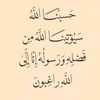 حَسْبُنَا اللَّهُ
سَيُؤْتِينَا اللَّهُ مِن
فَضْلِهِ وَرَسُولُهُ إِنَّا إِلَى
اللَّهِ رَاغِبُونَ